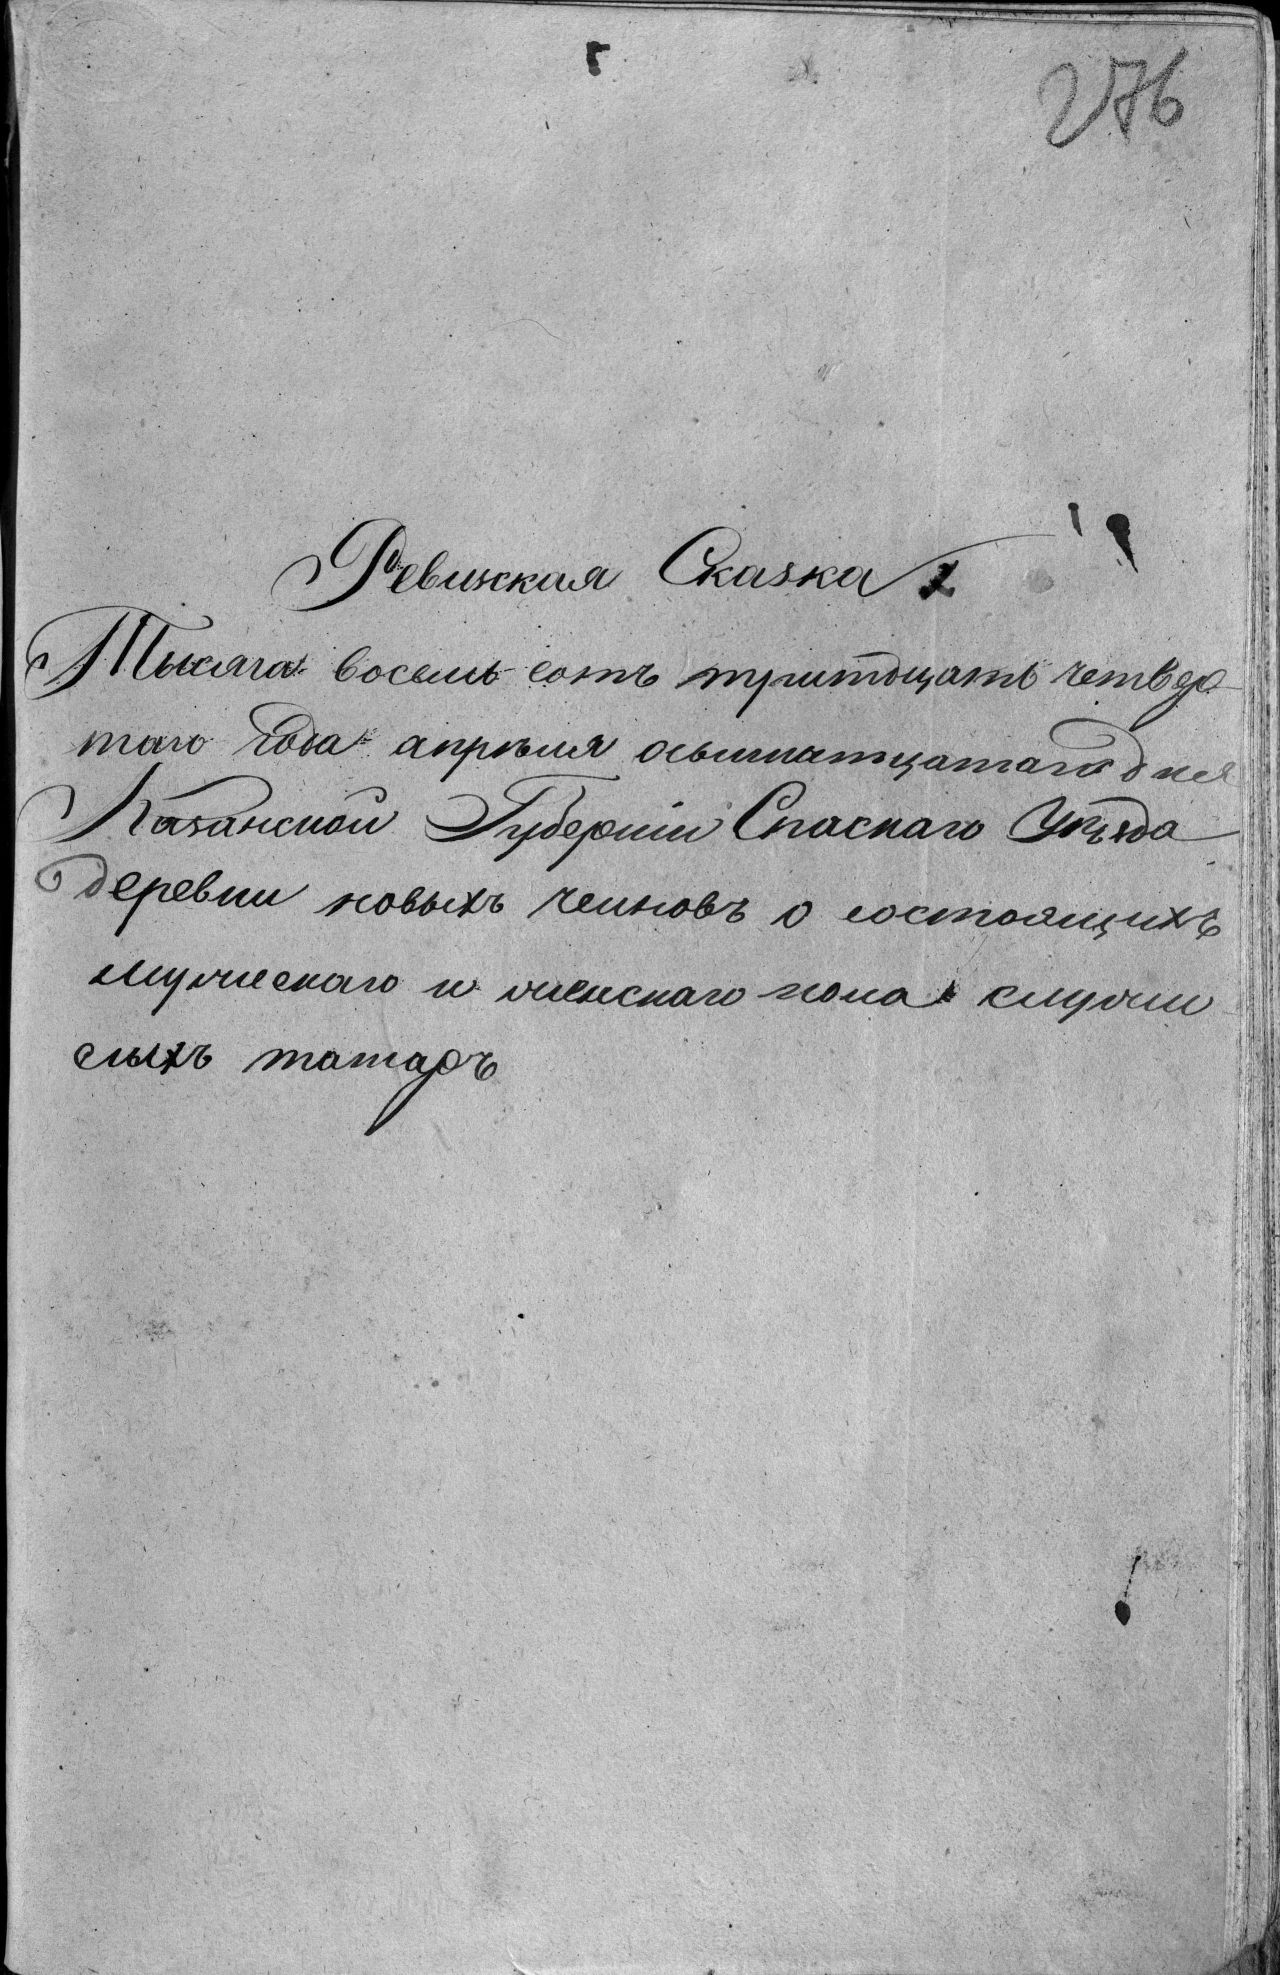 276
Ревизская Сказка
Тысяча восемь сотъ тритдцать четвер
таго года апрѣля осьмнатцатаго дня
Казанской Губерніи Спаскаго Уѣзда
деревни новыхъ челновъ о состоящихъ
мужескаго и женскаго пола служи
лыхъ татаръ